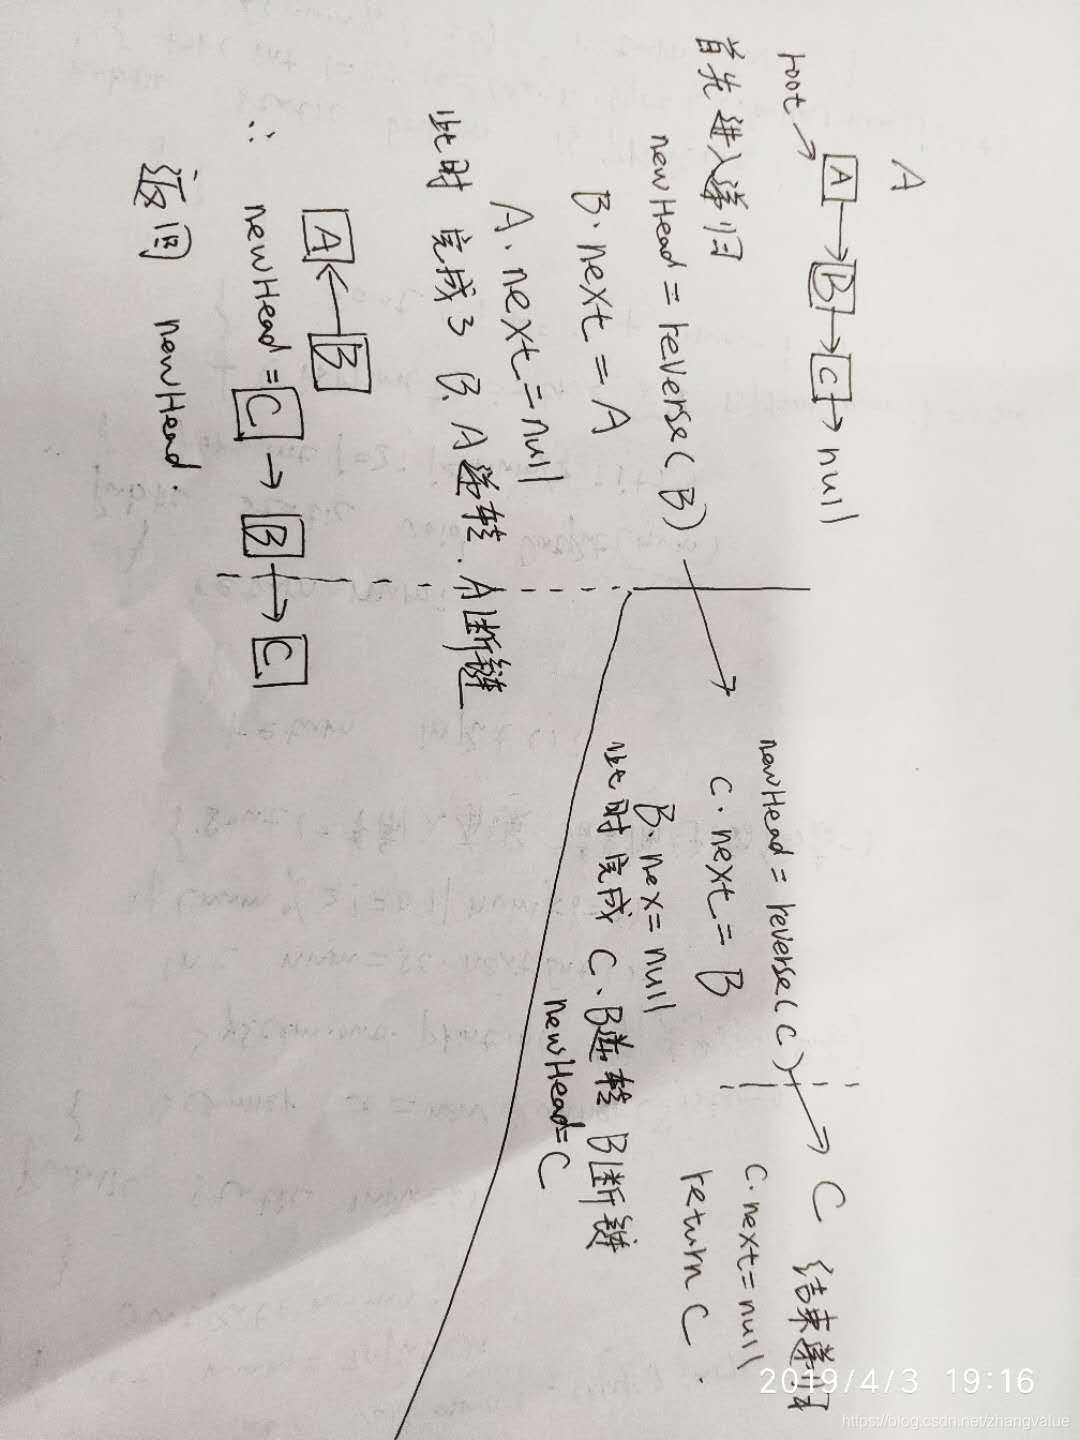 A
root → A → B → C → null
首先进入递归
newHead = reverse(B)
B.next = A
A.next = null
此时 完成3 B.A 逆转. A断链
A ← B
∴ newHead = C → B → C
返回 newHead.
newHead = reverse(C)
C.next = B
B.nex = null
此时完成 C.B逆转 B断链
newHead=C
C 结束递归
C.next=null
return C.
2019/4/3 19:16
https://blog.csdn.net/zhangvalue